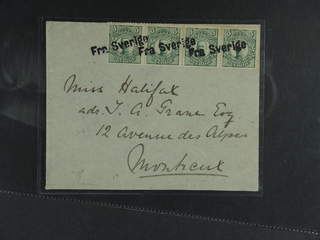 Fra Sverige Fra Sverige Fra Sverige
Miss Halifax
ads. T. A. Grane Esq
12 Avenue des Alpes
Montreux